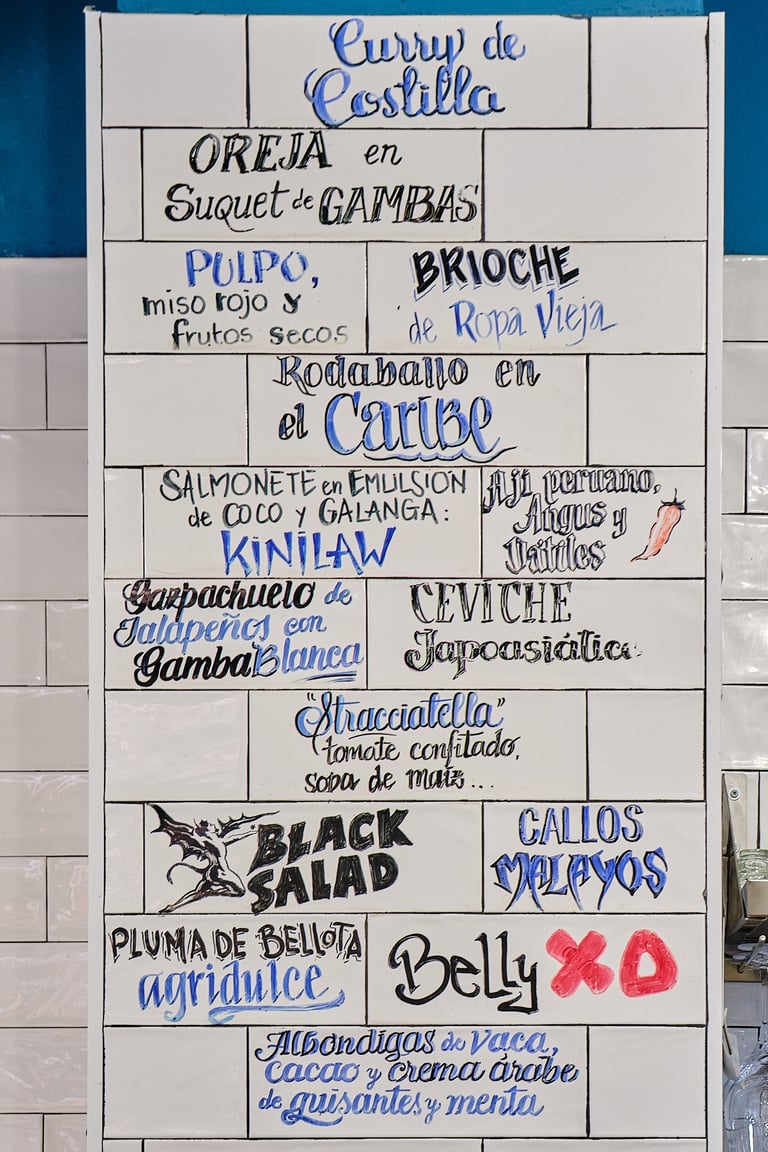 Curry de
Costilla
OREJA en
Suquet de GAMBAS
PULPO,
miso rojo y
frutos secos
BRIOCHE
de Ropa Vieja
Rodaballo en
el Caribe
SALMONETE en EMULSION
de COCO y GALANGA:
KINILAW
Ají peruano,
Angus y
Dátiles
Gazpachuelo de
Jalapeños con
Gamba Blanca
CEVICHE
Japoasiático
"Stracciatella"
tomate confitado,
sopa de maíz...
BLACK
SALAD
CALLOS
MALAYOS
PLUMA DE BELLOTA
agridulce
Belly XO
Albondigas de Vaca,
cacao y crema árabe
de guisantes y menta